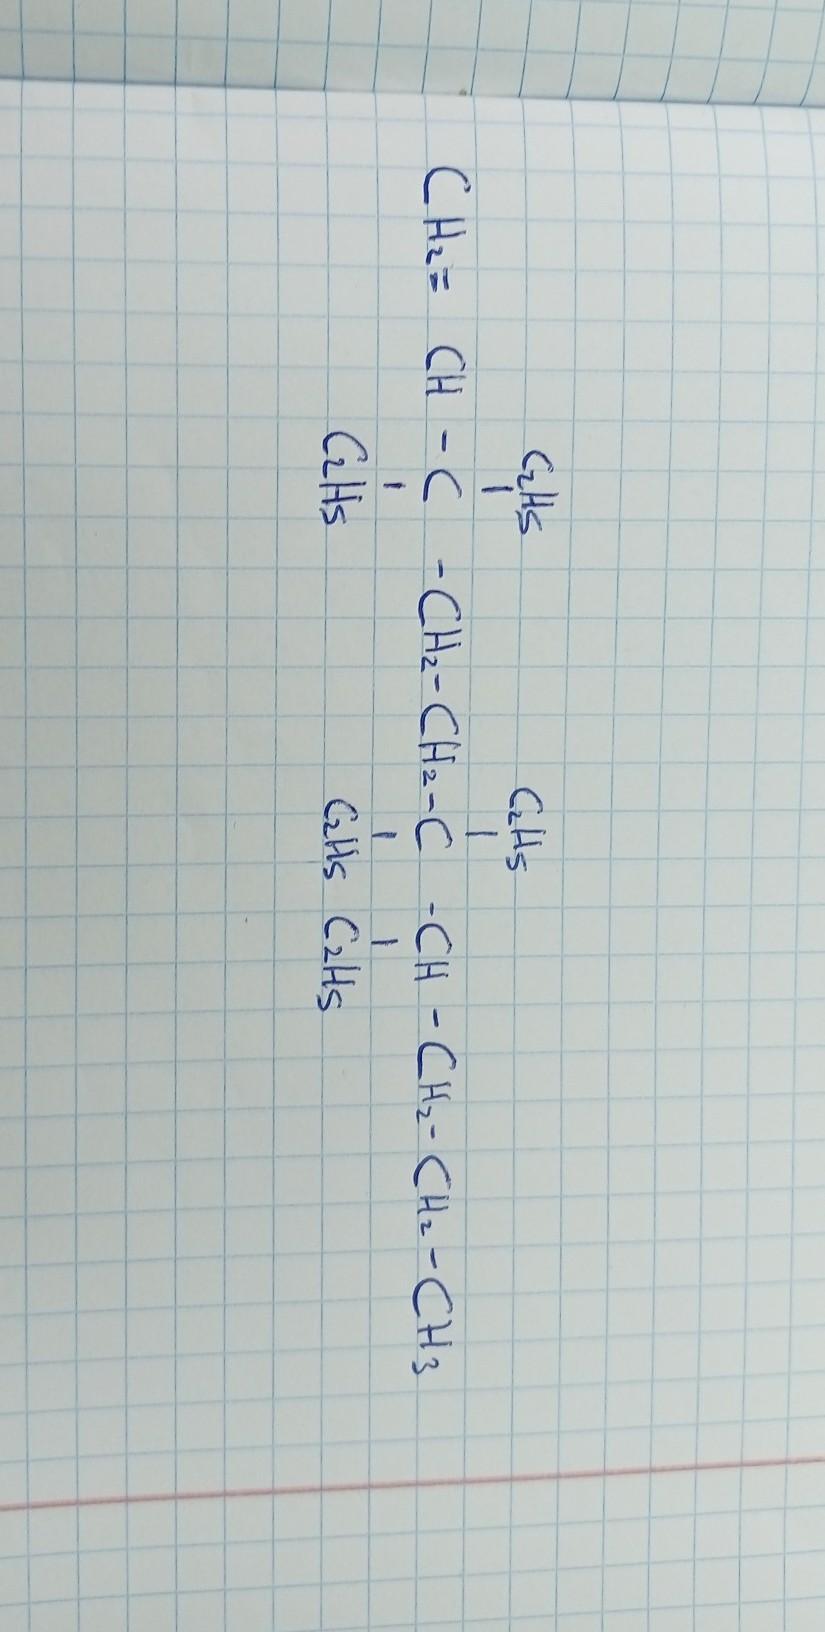 C2H5 C2H5
CH2= CH - C - CH2 - CH2 - C - CH - CH2 - CH2 - CH3
C2H5 C2H5 C2H5